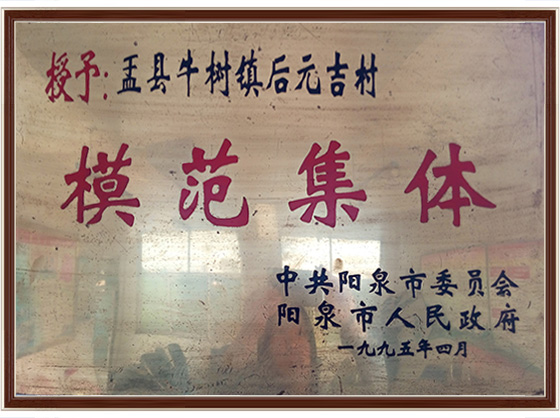 授予:盂县牛树镇后元吉村
模范集体
中共阳泉市委员会
阳泉市人民政府
一九九五年四月